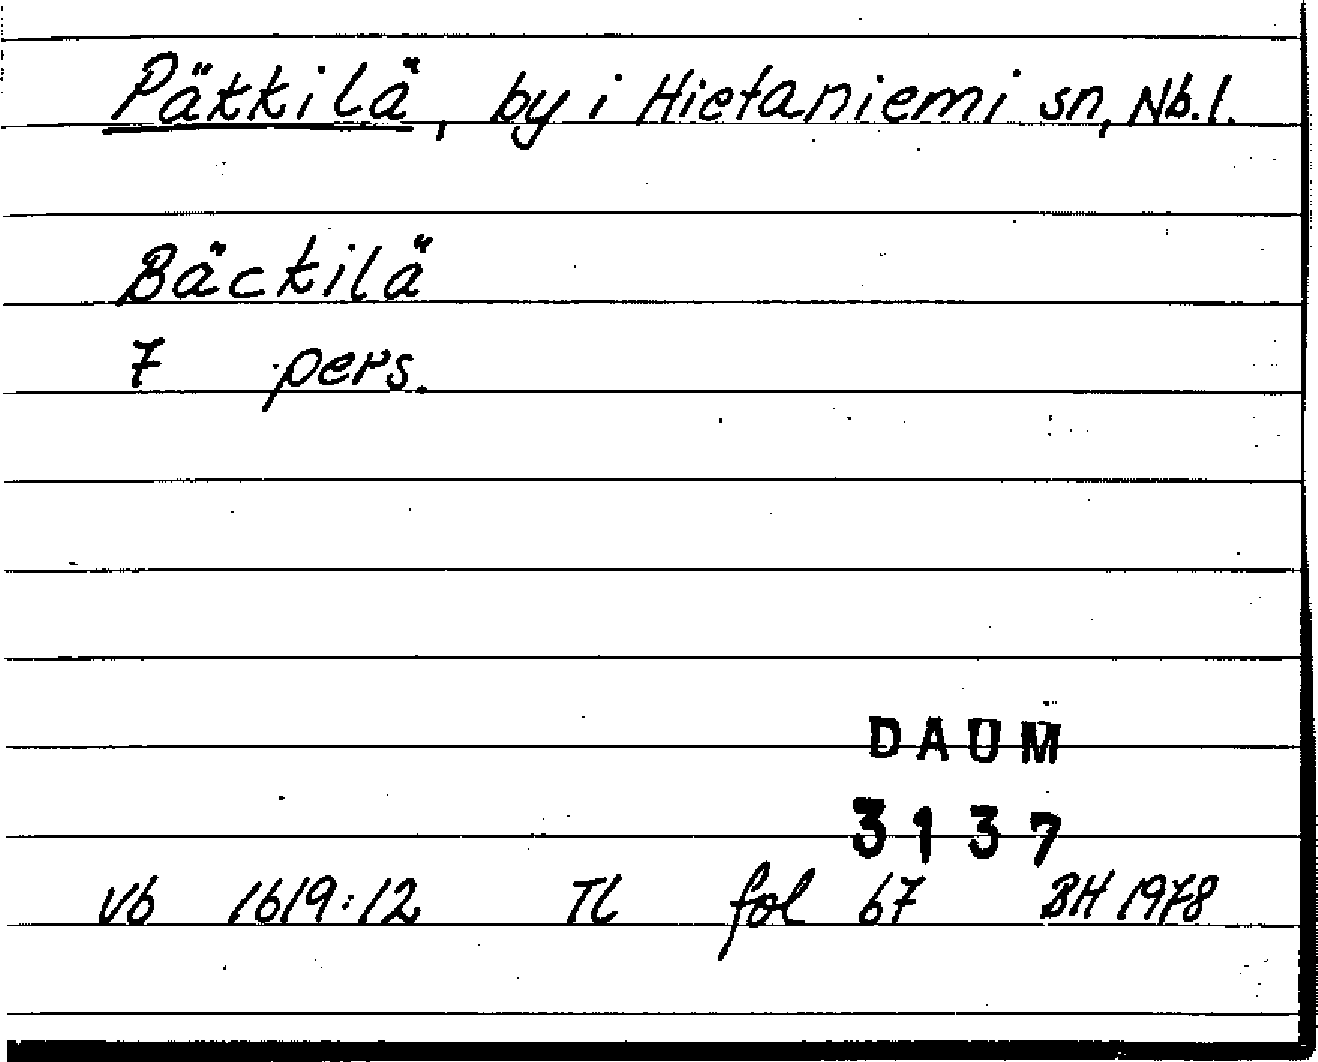 Päkkilä, by i Hietaniemi sn, Nb.l.
Bäckilä
7 pers.
DAUM
3137
Vb 1619:12 TL fol 67 BH 1978